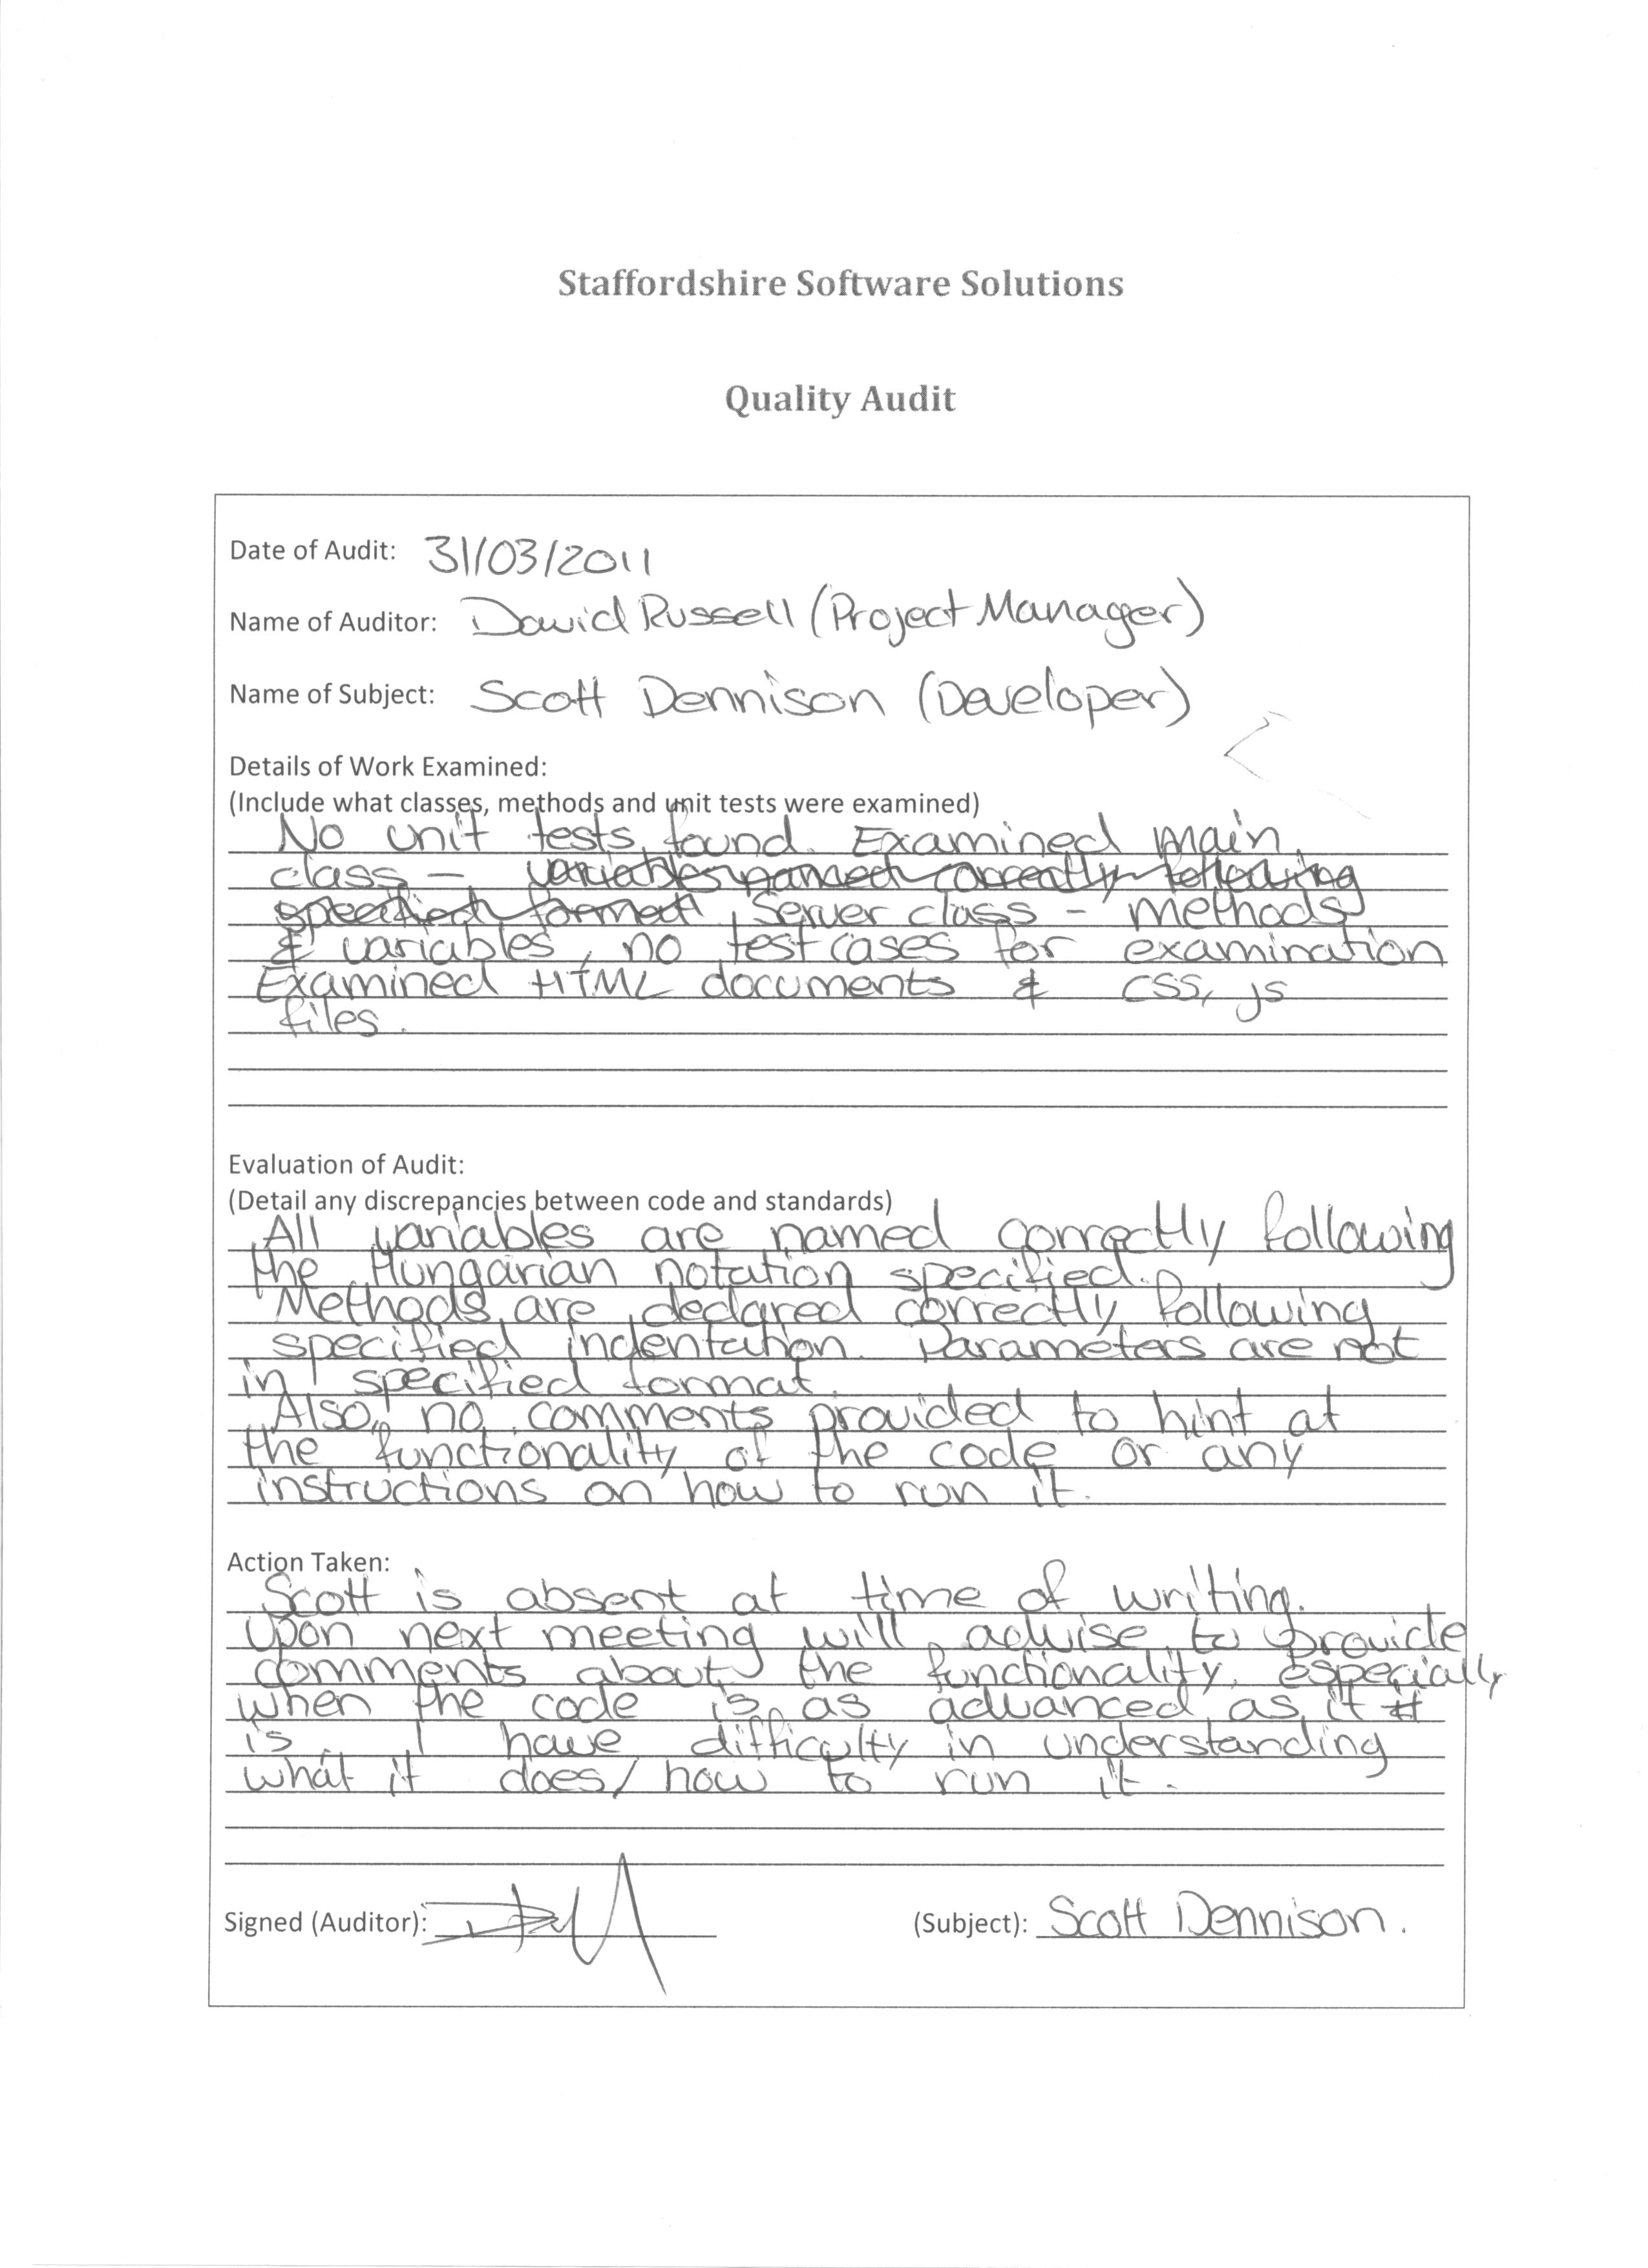 Staffordshire Software Solutions
Quality Audit
Date of Audit: 31/03/2011
Name of Auditor: David Russell (Project Manager)
Name of Subject: Scott Dennison (Developer)
Details of Work Examined:
(Include what classes, methods and unit tests were examined)
No unit tests found. Examined main
class - variables named correctly following
specified format, Server class - methods
& variables, no test cases for examination
Examined HTML documents & CSS, js
files.
Evaluation of Audit:
(Detail any discrepancies between code and standards)
All variables are named correctly following
the Hungarian notation specified.
Methods are declared correctly following
specified indentation. Parameters are not
in specified format.
Also, no comments provided to hint at
the functionality of the code or any
instructions on how to run it.
Action Taken:
Scott is absent at time of writing.
Upon next meeting will advise to provide
comments about the functionality, especially
when the code is as advanced as it
is. I have difficulty in understanding
what it does/how to run it.
Signed (Auditor):
(Subject): Scott Dennison.